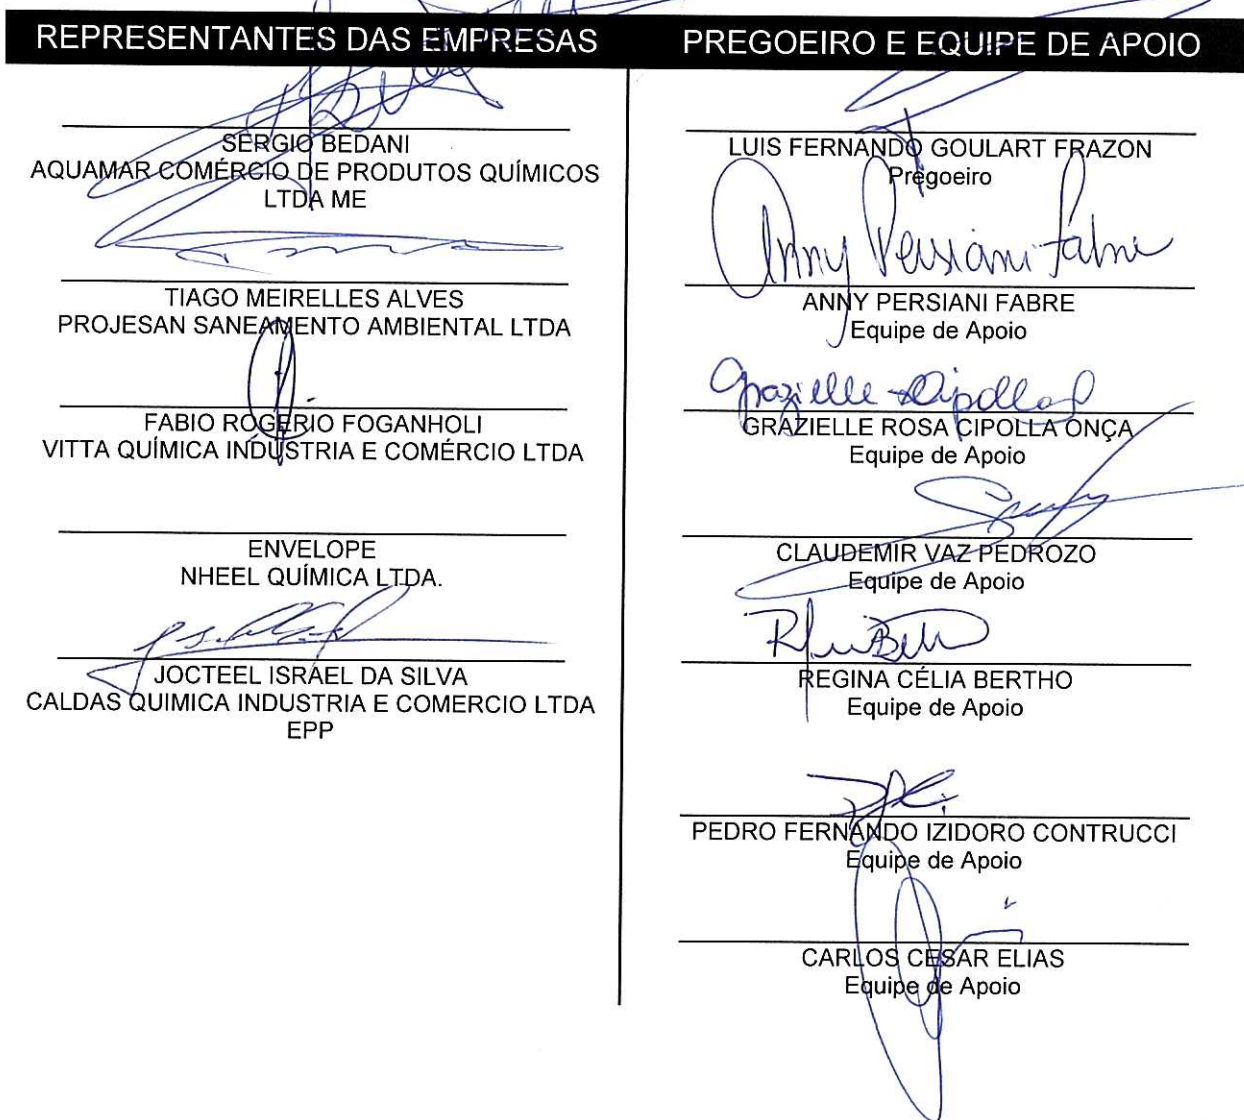 REPRESENTANTES DAS EMPRESAS
SERGIO BEDANI
AQUAMAR COMÉRCIO DE PRODUTOS QUÍMICOS
LTDA ME
TIAGO MEIRELLES ALVES
PROJESAN SANEAMENTO AMBIENTAL LTDA
FABIO ROGÉRIO FOGANHOLI
VITTA QUÍMICA INDÚSTRIA E COMÉRCIO LTDA
ENVELOPE
NHEEL QUÍMICA LTDA.
JOCTEEL ISRAEL DA SILVA
CALDAS QUIMICA INDUSTRIA E COMERCIO LTDA
EPP
PREGOEIRO E EQUIPE DE APOIO
LUIS FERNANDO GOULART FRAZON
Pregoeiro
Anny Persiani Fabre
ANNY PERSIANI FABRE
Equipe de Apoio
Grazielle Cipolla
GRAZIELLE ROSA CIPOLLA ONÇA
Equipe de Apoio
CLAUDEMIR VAZ PEDROZO
Equipe de Apoio
REGINA CÉLIA BERTHO
Equipe de Apoio
PEDRO FERNANDO IZIDORO CONTRUCCI
Equipe de Apoio
CARLOS CESAR ELIAS
Equipe de Apoio